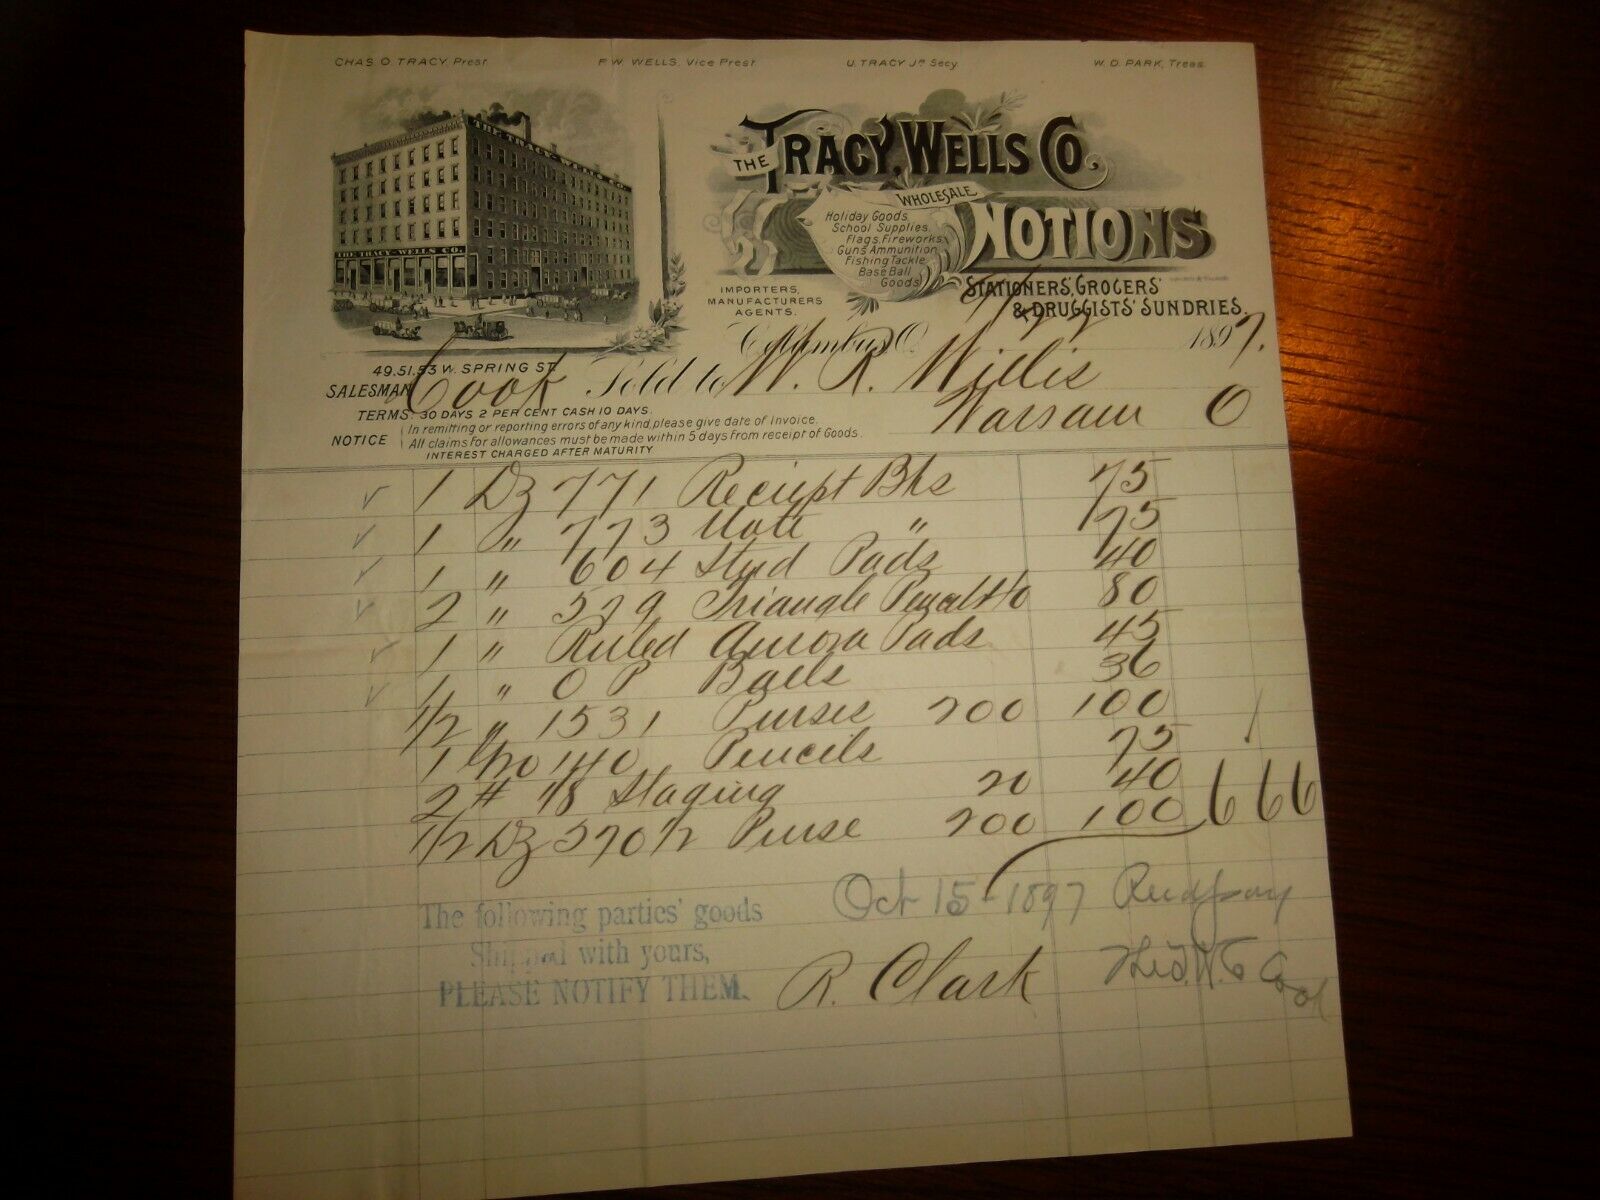 CHAS O. TRACY, Prest. F. W. WELLS, Vice Prest. U. TRACY Jr. Secy. W. D. PARK, Treas.
THE TRACY-WELLS CO.
THE TRACY-WELLS CO.
THE TRACY, WELLS CO.,
WHOLESALE
NOTIONS
Holiday Goods,
School Supplies,
Flags, Fireworks,
Guns Ammunition,
Fishing Tackle,
Base Ball
Goods
STATIONERS', GROCERS'
& DRUGGISTS' SUNDRIES.
IMPORTERS,
MANUFACTURERS
AGENTS.
Columbus, O. 1897.
49, 51, 53 W. SPRING ST.
SALESMAN Cook Sold to W. R. Willis
Warsaw O
TERMS: 30 DAYS 2 PER CENT CASH 10 DAYS.
NOTICE In remitting or reporting errors of any kind, please give date of Invoice.
All claims for allowances must be made within 5 days from receipt of Goods.
INTEREST CHARGED AFTER MATURITY
1 Dz 771 Reciept Bks 75
1 " 773 Note " 75
1 " 604 Stud Pads 40
2 " 529 Triangle 40 80
1 " Ruled Aurora Pads 45
1 " O P Balls 36
1/2 " 1531 Purses 200 100
1 140 Pencils 75
2 # 18 Staging 20 40
1/2 Dz 5701/2 Purse 200 100 666
Oct 15-1897
The following parties' goods
Shipped with yours,
PLEASE NOTIFY THEM.
R. Clark
Cook